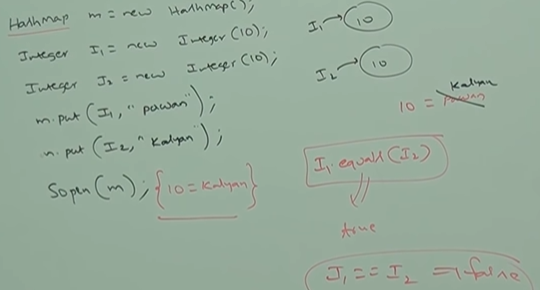 HashMap m = new HashMap();
Integer I1 = new Integer(10);
Integer I2 = new Integer(10);
m.put(I1, "pawan");
m.put(I2, "Kalyan");
Sopln(m); {10=Kalyan}
I1 → 10
I2 → 10
Kalyan
10 = pawan
I1.equals(I2)
true
I1 == I2 ⇒ false